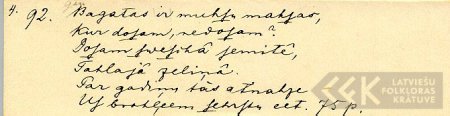 4. 92. Bagatas ir muhsu mahsas,
Kur dosam, nedosam?
Dosam sweschâ semitê,
Tahlajâ zeliņâ.
Par gadiņu tàs atnahze
Us brahleem sehrstu eet. 75 p.
LATVIEŠU
FOLKLORAS
KRĀTUVE